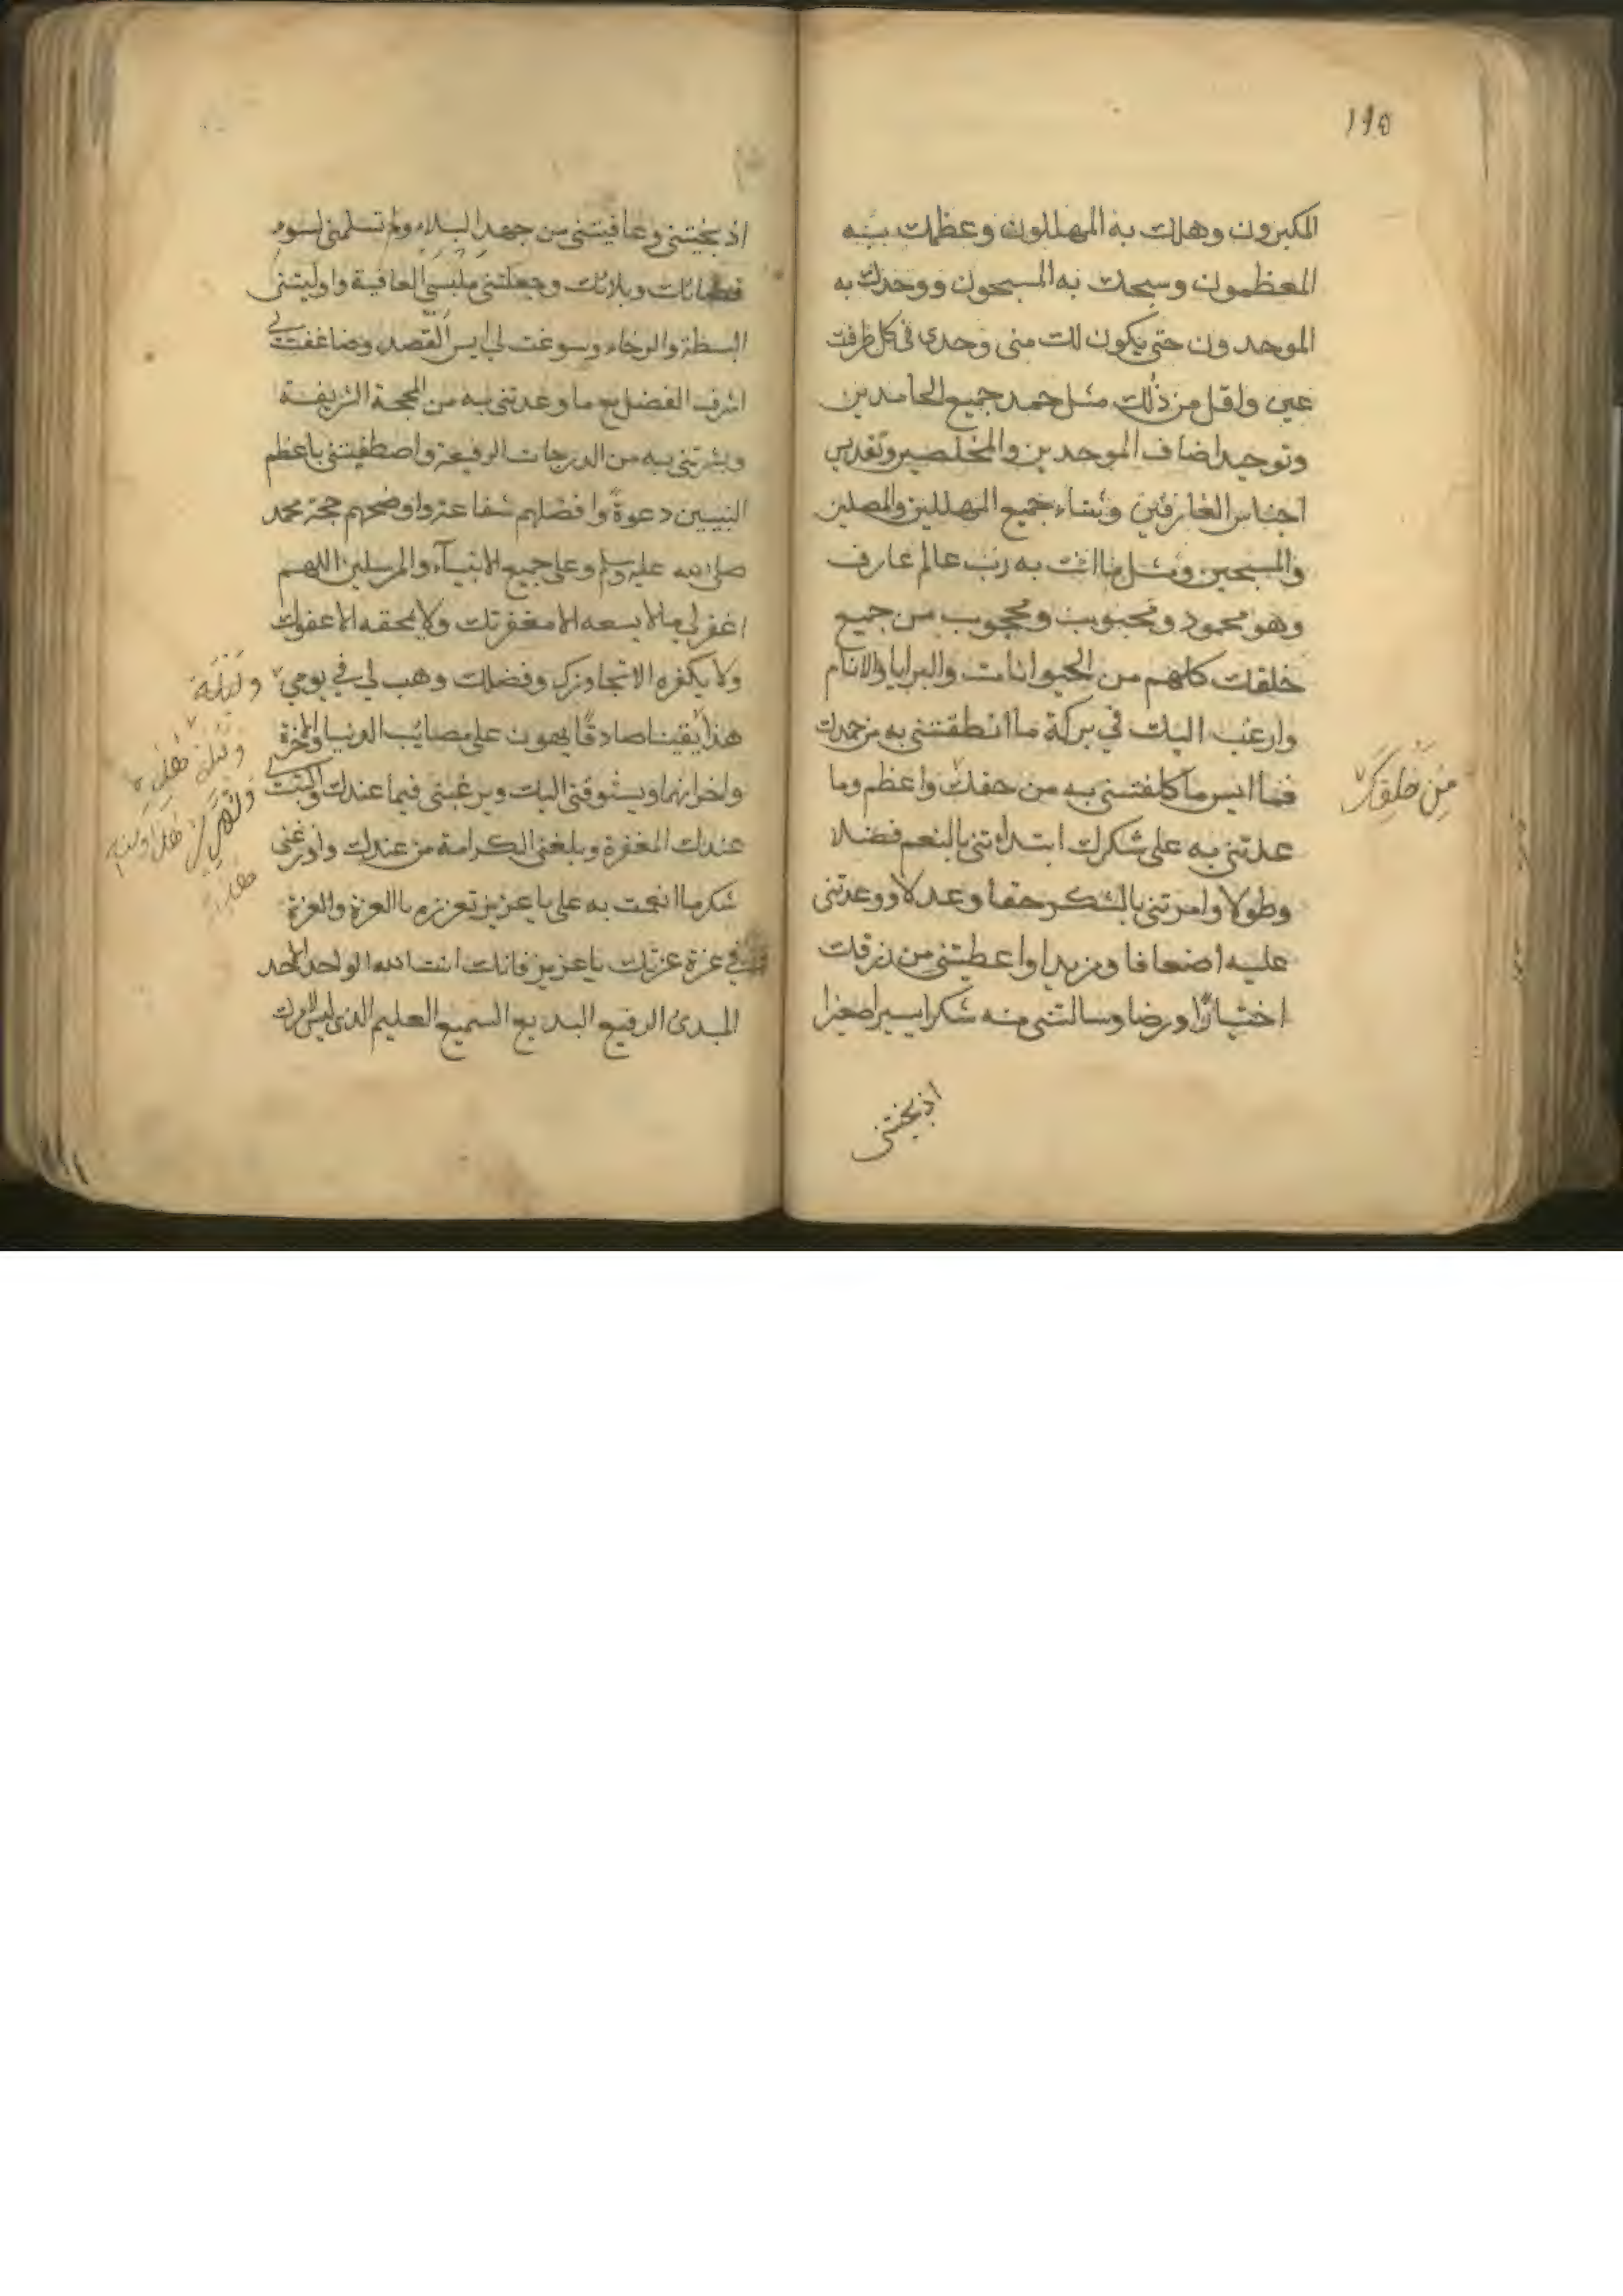 ١١٥
المكبرون وهللك به المهللون وعظمك به
المعظمون وسبحك به المسبحون ووحدك به
الموحدون حتى يكون لك منى وحدى فى كل طرفت
عين واقل من ذلك مثل حمد جميع الحامدين
وتوحيد اضاف الموحدين والمخلصين وتقديس
اجناس العارفين وثناء جميع المهللين والمصلين
والمسبحين ومثل ما انت به رب عالم عارف
وهو محمود ومحبوب ومحجوب من جميع
خلقك كلهم من الحيوانات والبرايا والانام
من خلقك
وارغب اليك في بركة ما انطقتنى به من حمدك
فما ايسر ما كلفتنى به من حقك واعظم وما
عدتنى به على شكرك ابتداتنى بالنعم فضلا
وطولا وامرتنى بالشكر حقا وعدلا ووعدتنى
عليه اضعافا ومزيدا واعطيتنى من رزقك
اختيارًا ورضا وسالتنى منه شكرا يسيرا صغيرا
اذ نجيتنى
اذ نجيتنى وعافيتنى من جهد البلاء ولم تسلمنى لسوء
قضائك وبلائك وجعلت ملبسى العافية واوليتنى
البسطة والرخاء وسوغت لي ايسر القصد وضاعفت لي
اشرف الفضل مع ما وعدتنى به من المحجة الشريفة
وبشرتنى به من الدرجات الرفيعة واصطفيتنى باعظم
النبيين دعوةً وافضلهم شفاعة واوضحهم حجة محمد
صلى الله عليه وسلم وعلى جميع الانبيآء والمرسلين اللهم
اغفر لي ما لا يسعه الا مغفرتك ولا يمحقه الا عفوك
ولا يكفره الا تجاوزك وفضلك وهب لي في يومي
هذا يقينا صادقًا يهون على مصائب الدنيا والاخرة
واحزانهما ويشوقنى اليك ويرغبنى فيما عندك واكتب لي
عندك المغفرة وبلغنى الكرامة من عندك واوزعنى
شكر ما انعمت به على يا عزيز تعززه بالعزة والعزة
في عزة عزتك يا عزيز فانك انت الله الواحد الاحد
المبدئ الرفيع البديع السميع العليم الذى ليس لامرك